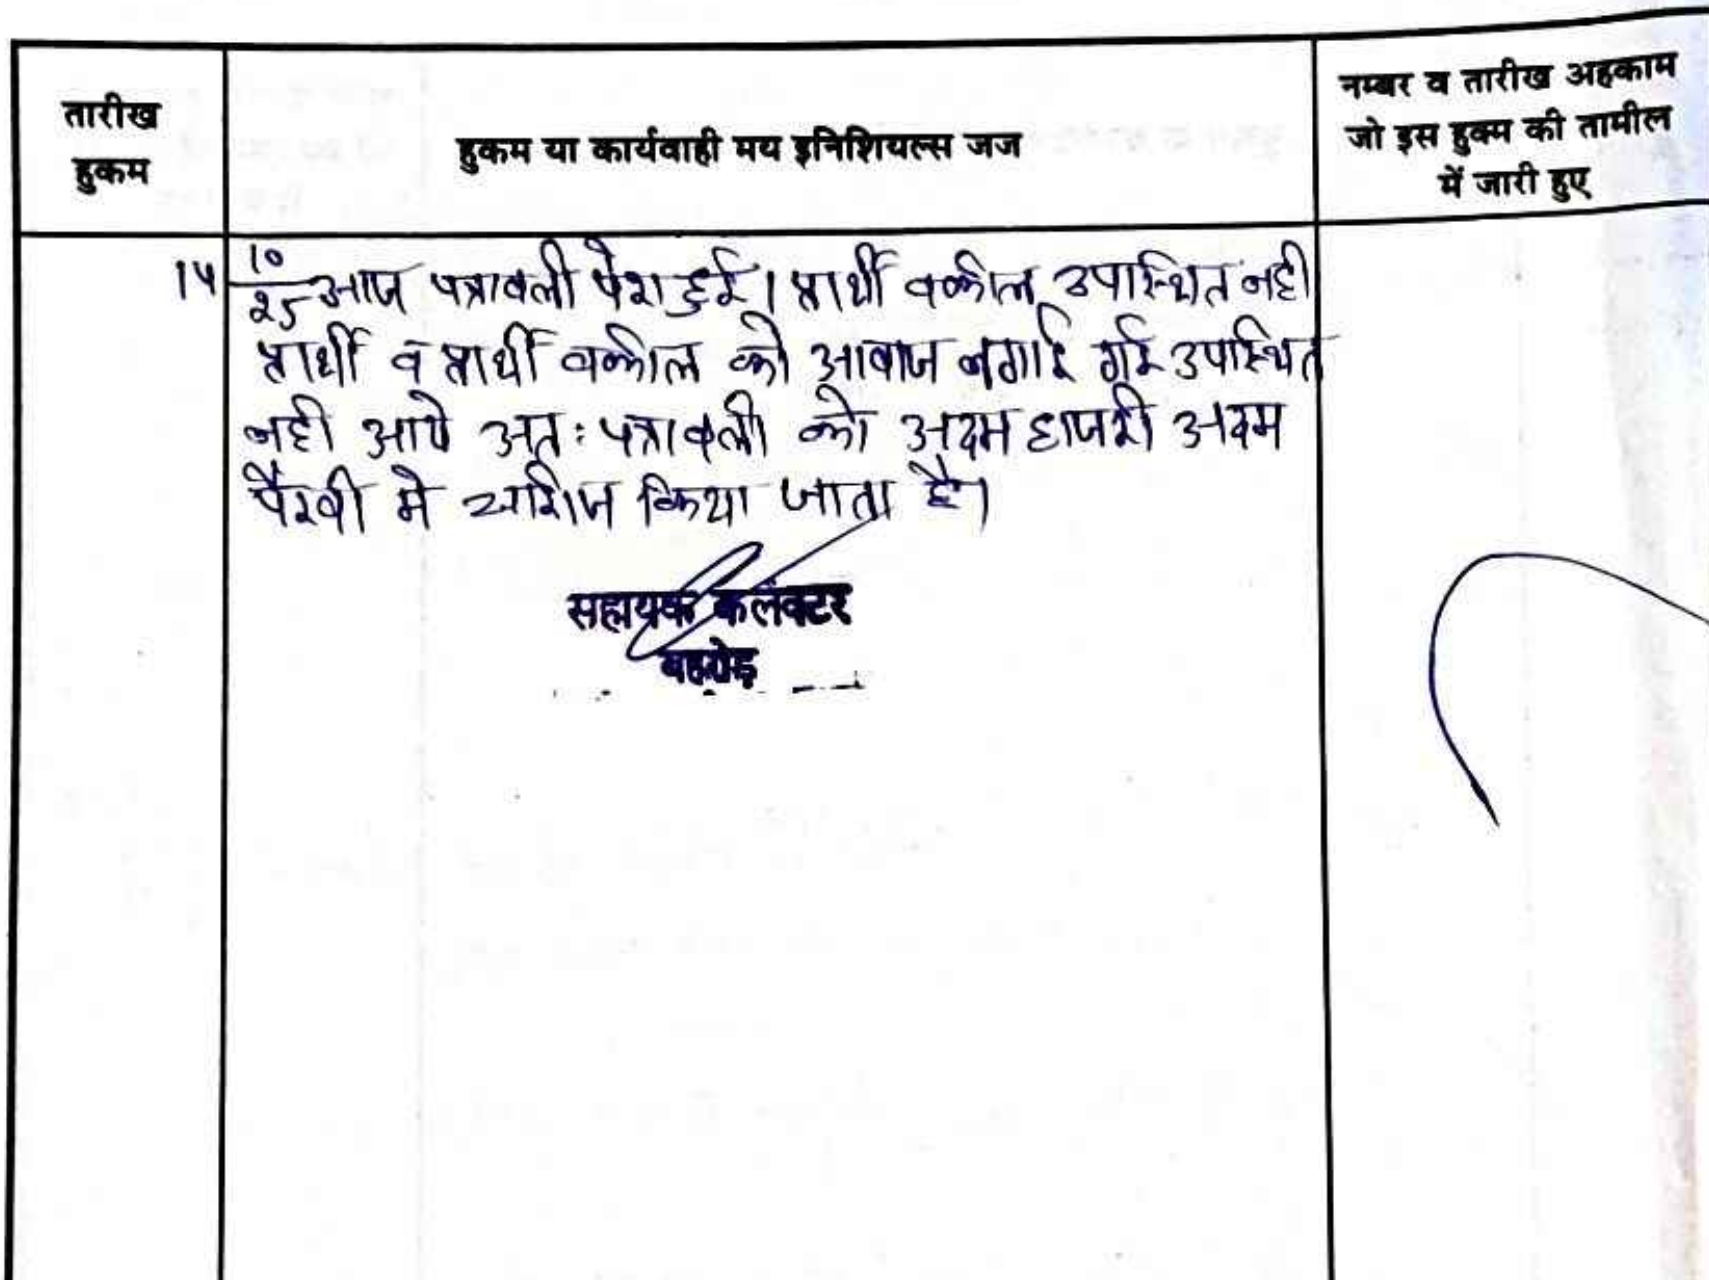 तारीख
हुकम
हुकम या कार्यवाही मय इनिशियल्स जज
नम्बर व तारीख अहकाम
जो इस हुक्म की तामील
में जारी हुए
14 10/25 आज पत्रावली पेश हुई। प्रार्थी वकील उपस्थित नही
प्रार्थी व प्रार्थी वकील को आवाज लगाई गई उपस्थित
नही आये अत: पत्रावली को अदम हाजरी अदम
पैरवी मे खारिज किया जाता है।
सहायक कलेक्टर
बहरोड़